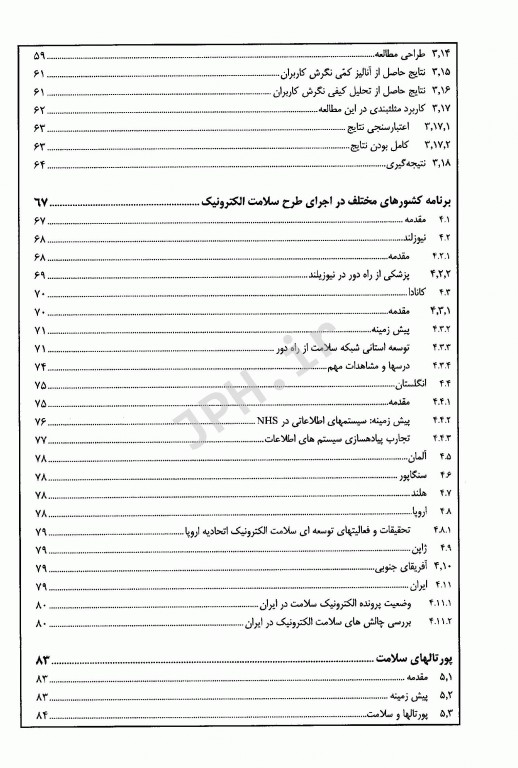 ۳,۱۴ طراحی مطالعه ۵۹
۳,۱۵ نتایج حاصل از آنالیز کمّی نگرش کاربران ۶۱
۳,۱۶ نتایج حاصل از تحلیل کیفی نگرش کاربران ۶۱
۳,۱۷ کاربرد مثلثبندی در این مطالعه ۶۲
۳,۱۷,۱ اعتبارسنجی نتایج ۶۳
۳,۱۷,۲ کامل بودن نتایج ۶۳
۳,۱۸ نتیجه‌گیری ۶۴
برنامه کشورهای مختلف در اجرای طرح سلامت الکترونیک ۶۷
۴.۱ مقدمه ۶۷
۴.۲ نیوزلند ۶۸
۴.۲.۱ مقدمه ۶۸
۴,۲,۲ پزشکی از راه دور در نیوزیلند ۶۹
۴.۳ کانادا ۷۰
۴,۳,۱ مقدمه ۷۰
۴.۳.۲ پیش زمینه ۷۱
۴.۳.۳ توسعه استانی شبکه سلامت از راه دور ۷۱
۴.۳.۴ درسها و مشاهدات مهم ۷۴
۴.۴ انگلستان ۷۵
۴.۴.۱ مقدمه ۷۵
۴.۴.۲ پیش زمینه: سیستمهای اطلاعاتی در NHS ۷۶
۴.۴.۳ تجارب پیادهسازی سیستم های اطلاعات ۷۷
۴.۵ آلمان ۷۸
۴.۶ سنگاپور ۷۸
۴.۷ هلند ۷۸
۴.۸ اروپا ۷۸
۴.۸.۱ تحقیقات و فعالیتهای توسعه ای سلامت الکترونیک اتحادیه اروپا ۷۹
۴.۹ ژاپن ۷۹
۴,۱۰ آفریقای جنوبی ۷۹
۴.۱۱ ایران ۷۹
۴.۱۱.۱ وضعیت پرونده الکترونیک سلامت در ایران ۸۰
۴.۱۱.۲ بررسی چالش های سلامت الکترونیک در ایران ۸۰
پورتالهای سلامت ۸۳
۵,۱ مقدمه ۸۳
۵,۲ پیش زمینه ۸۳
۵,۳ پورتالها و سلامت ۸۴
JPH.ir